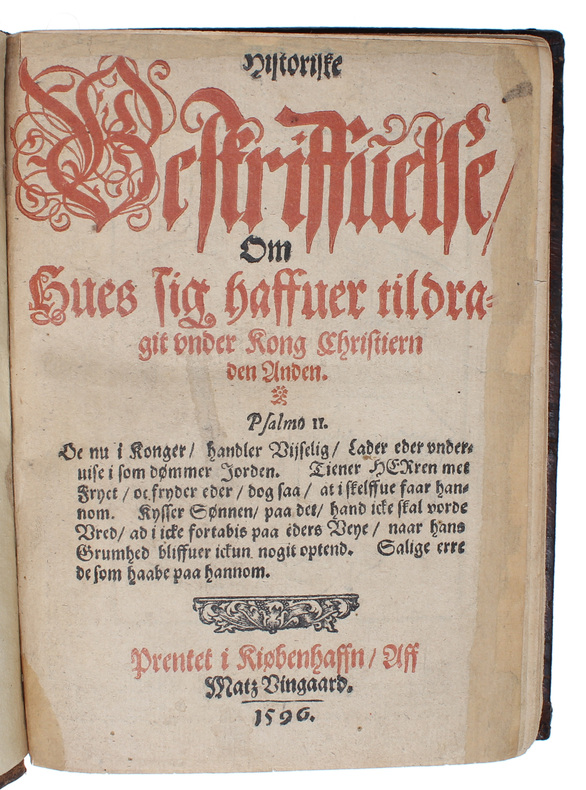 Historiske
Beskriffuelse/
Om
Hues sig haffuer tildra-
git vnder Kong Christiern
den Anden.
Psalmo II.
Oc nu i Konger/ handler Vijselig/ Lader eder vnder-
uise i som dømmer Jorden. Tiener HERren met
Fryct/ oc fryder eder/ dog saa/ at i skelffue faar han-
nom. Kysser Sønnen/ paa det/ hand icke skal vorde
Vred/ ad i icke fortabis paa eders Veye/ naar hans
Grumhed bliffuer ickun nogit optend. Salige erre
de som haabe paa hannom.
Prentet i Kiøbenhaffn/ Aff
Matz Vingaard.
1596.